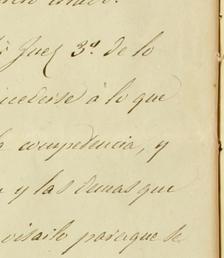 Juez 3º. de lo
cederse á lo que
competencia, y
y las demas que
para que se